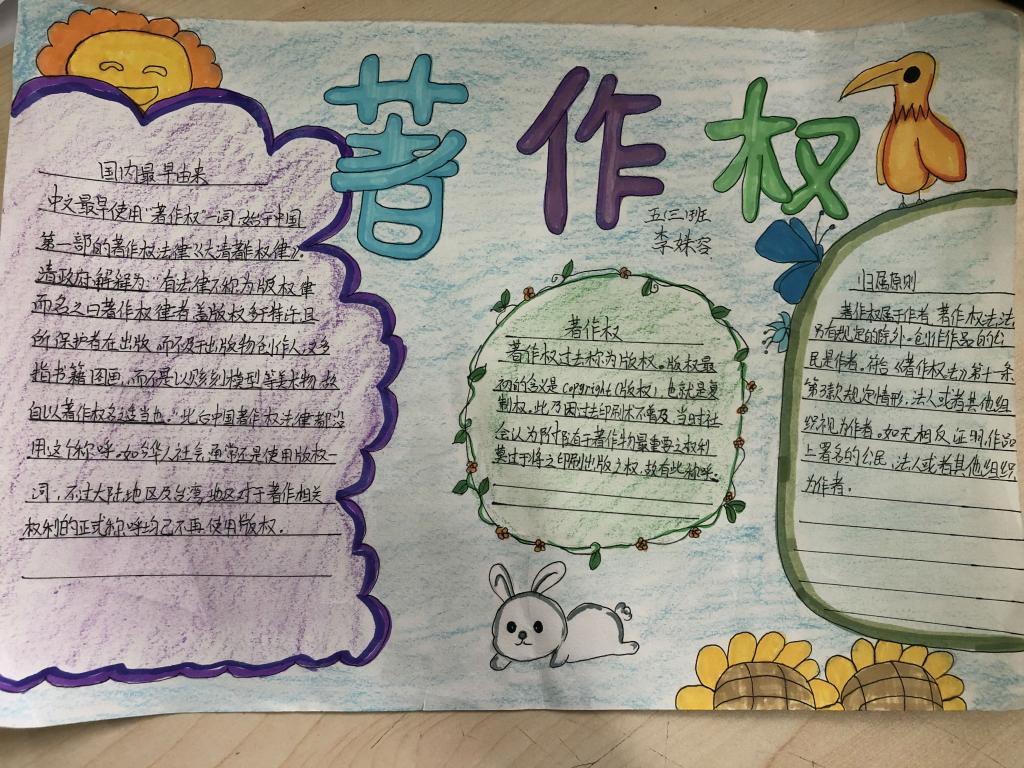 著作权
五(三)班
李姝容
国内最早由来
中文最早使用“著作权”一词,始于中国
第一部的著作权法律《大清著作权律》。
清政府解释为:“有法律不称为版权律
而名之曰著作权律者,盖版权多于特许且
所保护者在出版,而不及于出版物创作人;又多
指书籍图画,而不是以赅刻模型等美术物,故
自以著作权名适当也。”此后中国著作权法律都沿
用这个称呼。如今华人社会通常还是使用版权一
词,不过大陆地区及台湾地区对于著作相关
权利的正式称呼均已不再使用版权。
著作权
著作权过去称为版权。版权最
初的含义是copyright(版权),也就是复
制权。此乃因过去印刷术不普及,当时社
会认为附随于著作物最重要之权利
莫过于将之印刷出版之权,故有此称呼。
归属原则
著作权属于作者,著作权法
另有规定的除外。创作作品的公
民是作者。符合《著作权法》第十一条
第3款规定情形,法人或者其他组
织视为作者。如无相反证明,作品
上署名的公民、法人或者其他组织
为作者。